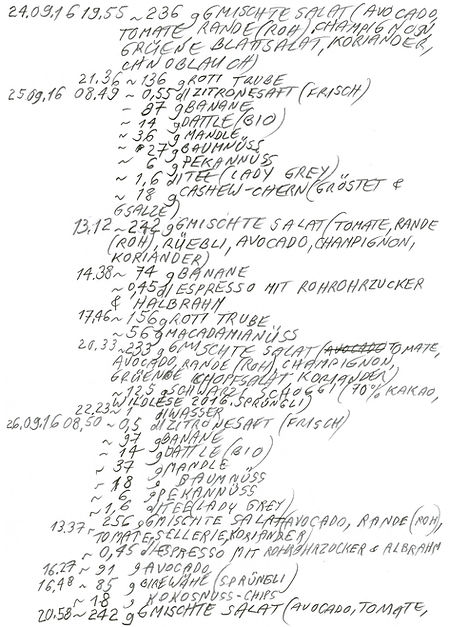 24.09.16 19.55 ~ 236 g GMISCHTE SALAT (AVOCADO,
TOMATE RANDE (ROH), CHAMPIGNON,
GRÜENE BLATTSALAT, KORIANDER,
CHNOBLAUCH)
21.36 ~ 136 g ROTI TRUBE
25.09.16 08.49 ~ 0,55 dl ZITRONESAFT (FRISCH)
~ 87 g BANANE
~ 14 g DATTLE (BIO)
~ 36 g MANDLE
~ 27 g BAUMNÜSS
~ 6 g PEKANNÜSS
~ 1,6 dl TEE (LADY GREY)
~ 18 g CASHEW-CHERN (GRÖSTET &
GSALZE)
13.12 ~ 242 g GMISCHTE SALAT (TOMATE, RANDE
(ROH), RÜEBLI, AVOCADO, CHAMPIGNON,
KORIANDER)
14.38 ~ 74 g BANANE
~ 0,45 dl ESPRESSO MIT ROHROHRZUCKER
& HALBRAHM
17.46 ~ 156 g ROTI TRUBE
~ 56 g MACADAMIANÜSS
20.33 ~ 235 g GMISCHTE SALAT (AVOCADO TOMATE,
AVOCADO, RANDE (ROH), CHAMPIGNON,
GRÜENE CHOPFSALAT KORIANDER)
~ 12,5 g SCHWARZI SCHOGGI (70% KAKAO,
WILDLESE 2016, SPRÜNGLI)
22.23 ~ 1 dl WASSER
26.09.16 08.50 ~ 0,5 dl ZITRONESAFT (FRISCH)
~ 97 g BANANE
~ 14 g DATTLE (BIO)
~ 37 g MANDLE
~ 18 g BAUMNÜSS
~ 6 g PEKANNÜSS
~ 1,6 dl TEE (LADY GREY)
13.37 ~ 256 g GMISCHTE SALAT (AVOCADO, RANDE (ROH),
TOMATE, SELLERIE, KORIANDER)
~ 0,45 dl ESPRESSO MIT ROHROHRZUCKER & ALBRAHM
16.27 ~ 91 g AVOCADO
16.48 ~ 85 g BIREWÄHE (SPRÜNGLI)
~ 18 g KOKOSNUSS-CHIPS
20.58 ~ 242 g GMISCHTE SALAT (AVOCADO, TOMATE,